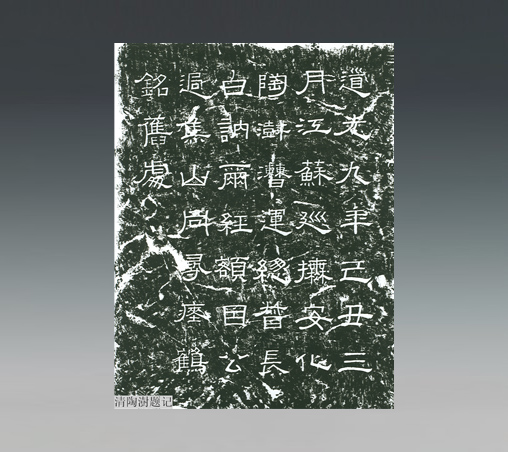 道光九年己丑三
月江蘇巡撫安化
陶澍漕運總督長
白訥爾經額因公
過焦山同尋瘞鶴
銘舊處
清陶澍题记